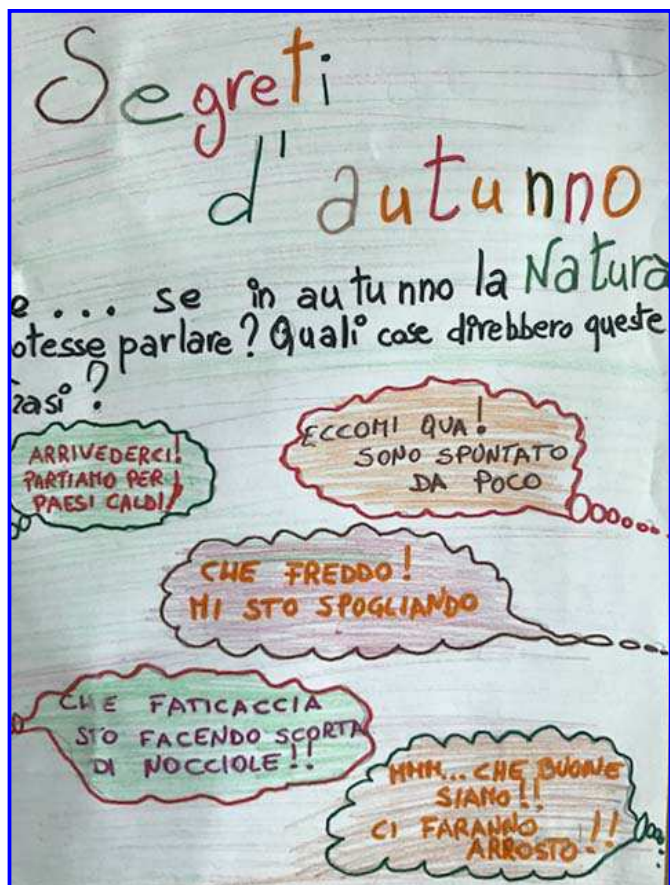 Segreti
d'autunno
e... se in autunno la Natura
otesse parlare? Quali cose direbbero queste
rasi?
ARRIVEDERCI!
PARTIAMO PER I
PAESI CALDI!
ECCOMI QUA!
SONO SPUNTATO
DA POCO
CHE FREDDO!
MI STO SPOGLIANDO
CHE FATICACCIA
STO FACENDO SCORTA
DI NOCCIOLE!!
MMM... CHE BUONE
SIAMO!!
CI FARANNO
ARROSTO..!!